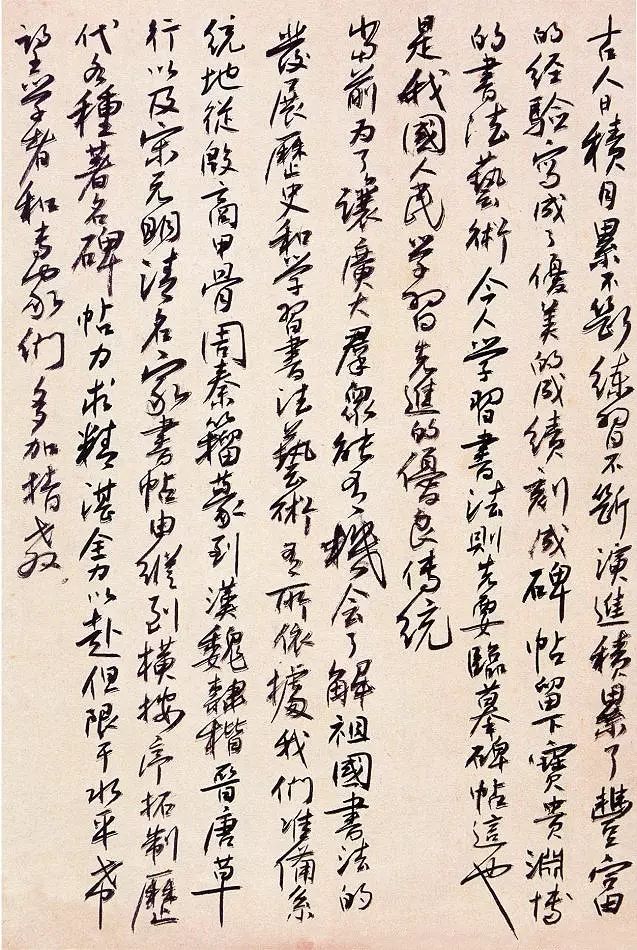 古人日積月累不斷練習不斷演進積累了豐富
的經驗寫成了優美的成績刻成碑帖留下寶貴淵博
的書法藝術今人学習書法則先要臨摹碑帖這也
是我國人民学習先進的優良傳統
當前为了讓廣大羣眾能有機会了解祖國書法的
發展歷史和学習書法藝術有所依據我们准備系
統地從殷商甲骨周秦籀篆到漢魏隸楷晋唐草
行以及宋元明清名家書帖由縱到横按序拓制歷
代各種著名碑帖力求精湛全力以赴但限于水平希
望学者和專家们多加指教